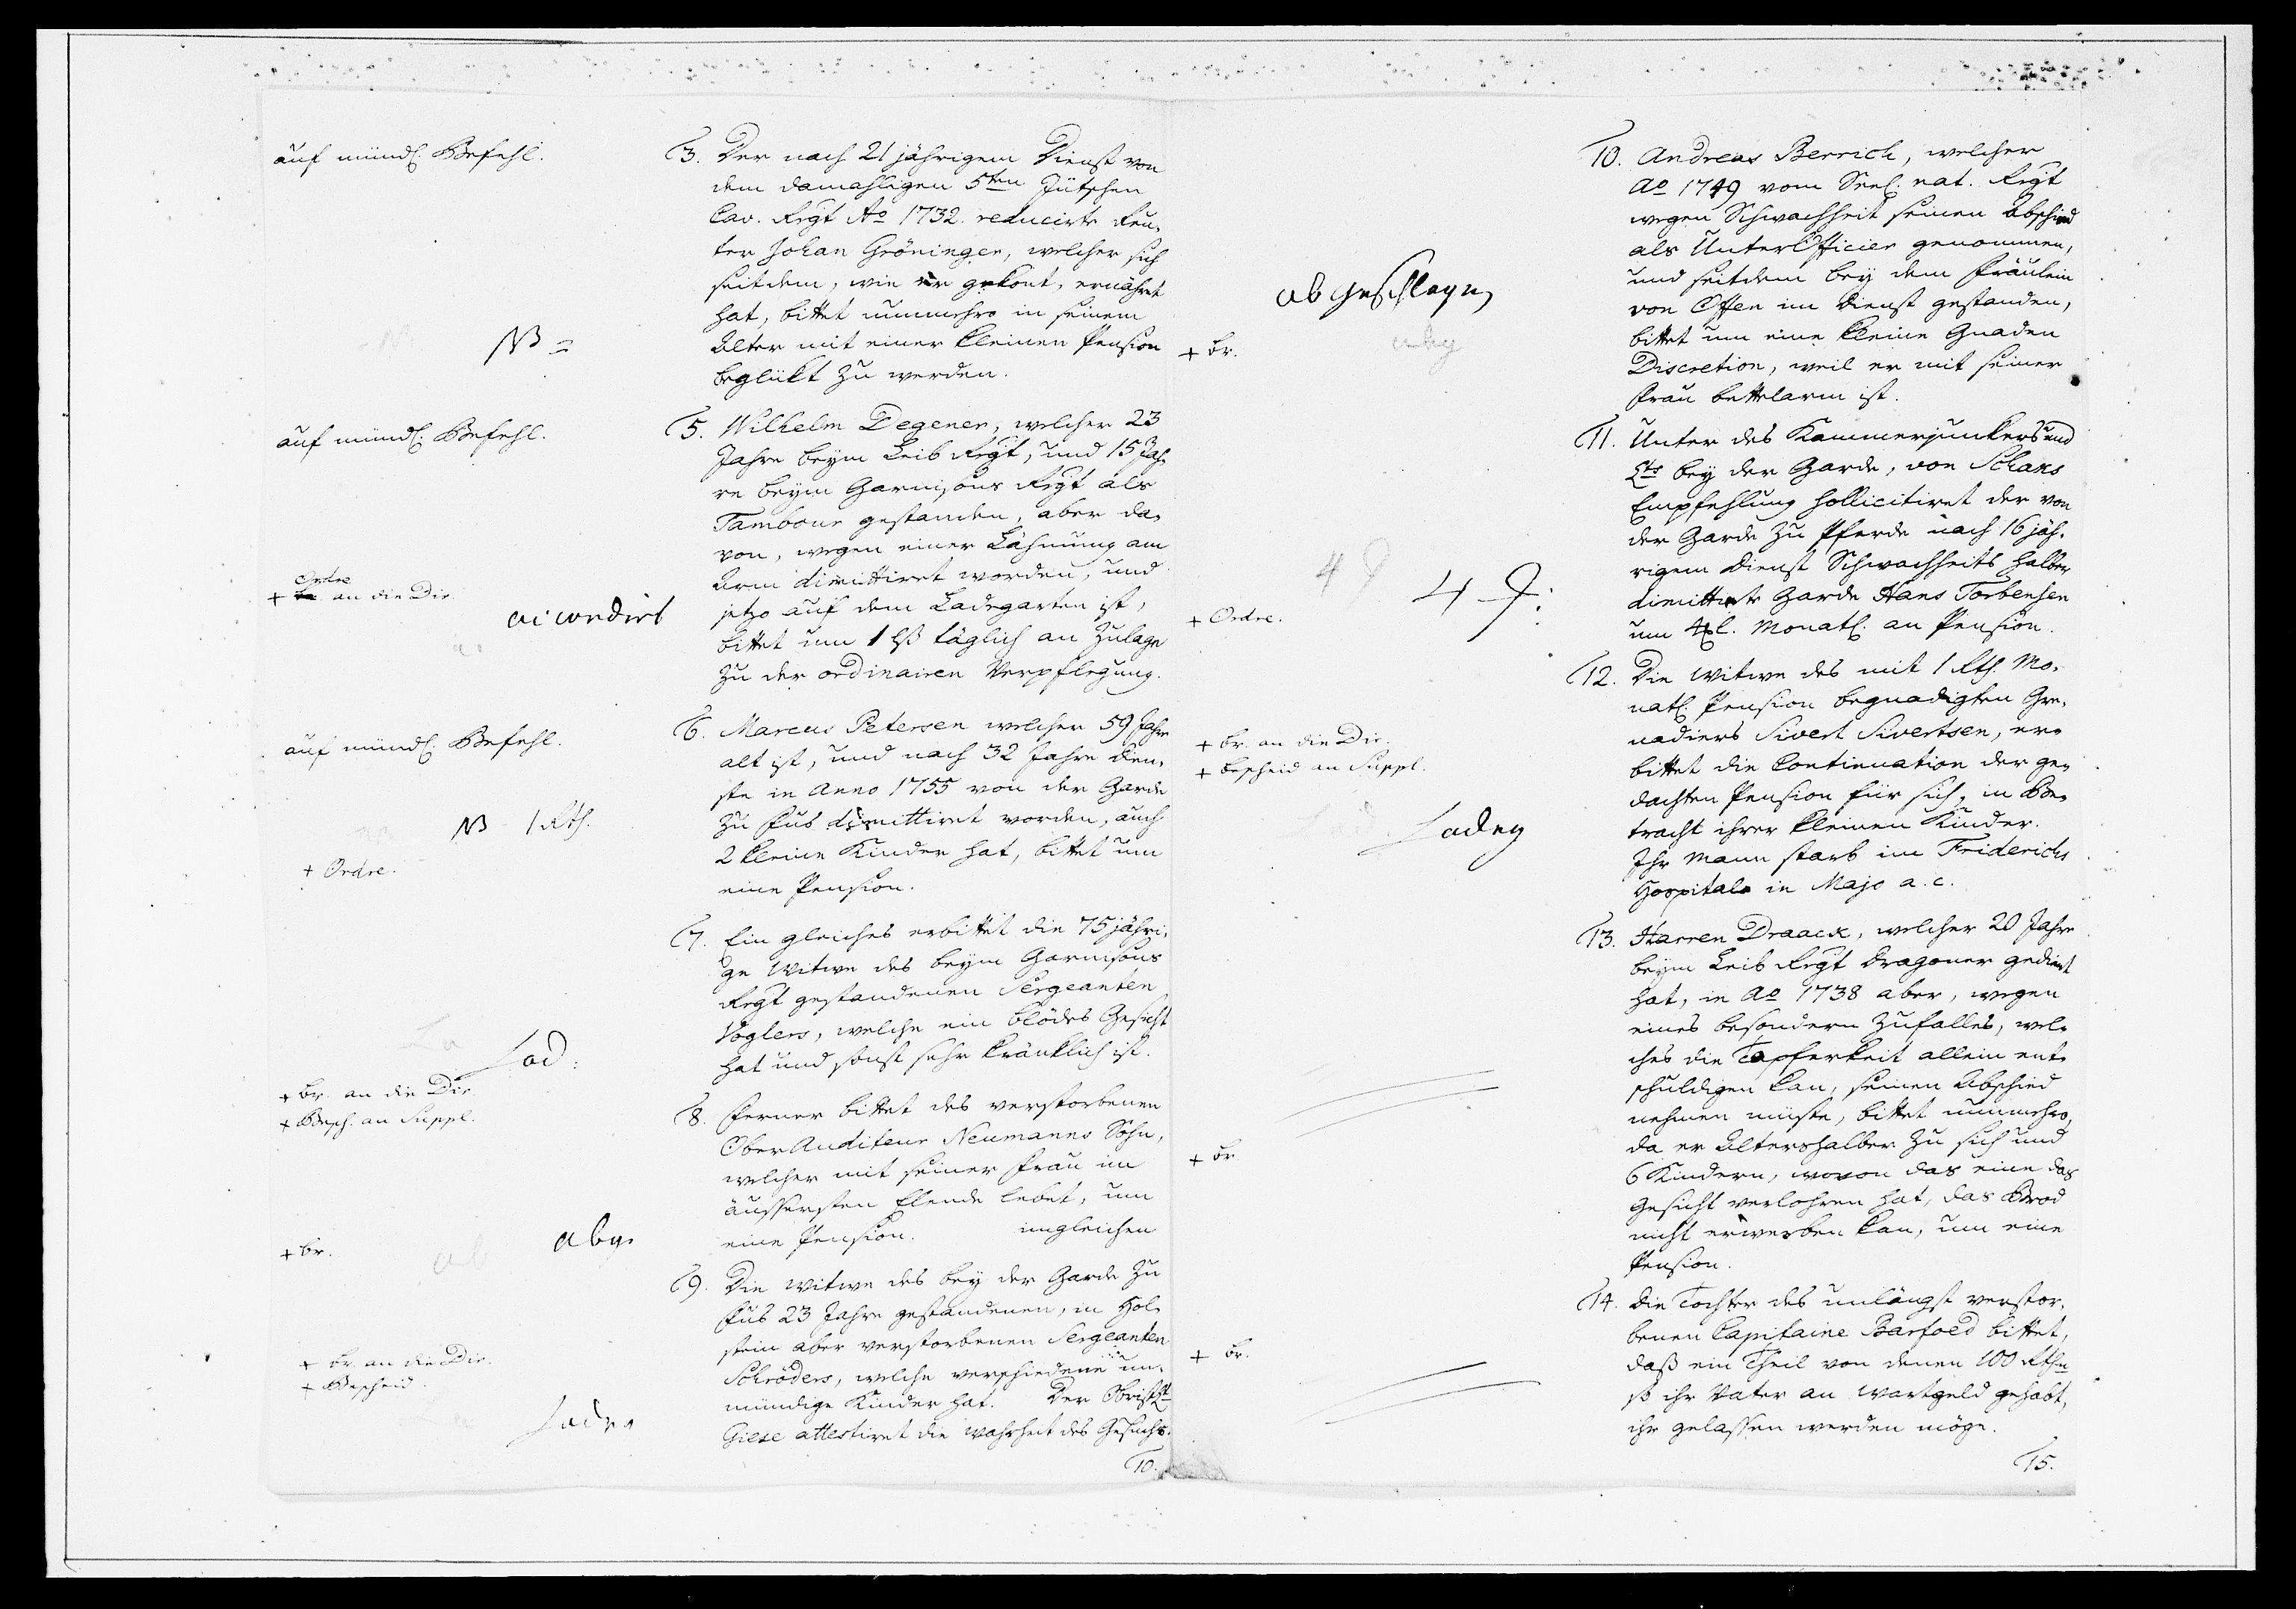 auf mündl. Befehl.
3. Der nach 21 jährigem Dienst von
dem damahligen 5ten Jütschen
Cav. Regt Ao 1732. reducirte Reu-
ter Johan Gröninger, welcher sich
seitdem, wie er gekont, ernähret
hat, bittet nunmehro in seinem
Alter mit einer kleinen Pension
beglükt zu werden.
NB =
auf mündl. Befehl.
5. Wilhelm Degener, welcher 23
Jahre beym Leib Regt, und 15 Jah-
re beym Garnisons Regt als
Tambour gestanden, aber da-
von, wegen einer Lähmung am
Arm dimittiret worden, und
jetzo auf dem Ladegarten ist,
bittet um 1 lß täglich an Zulage
zu der ordinairen Verpflegung.
Ordre
+ br. an die Dir.
accordirt
auf mündl. Befehl.
6. Marcus Petersen welcher 59 Jahr
alt ist, und nach 32 Jahre Dien-
ste in Anno 1755 von der Garde
zu Fus dimittiret worden, auch
2 kleine Kinder hat, bittet um
eine Pension.
NB 1 Rth.
+ Ordre.
7. Ein gleiches erbittet die 75 jähri-
ge Witwe des beym Garnisons
Regt gestandenen Sergeanten
Voglers, welche ein blödes Gesicht
hat und sonst sehr kränklich ist.
Lad:
+ br. an die Dir.
+ Besch. an Suppl.
8. Ferner bittet des verstorbenen
Ober Auditeur Neumanns Sohn,
welcher mit seiner Frau im
äussersten Elende lebet, um
eine Pension. imgleichen
abg.
+ br.
9. Die Witwe des bey der Garde zu
Fus 23 Jahre gestandenen, in Hol-
stein aber verstorbenen Sergeanten
Schröders, welche verschiedene un-
mündige Kinder hat. Der ObristLt
Giese attestiret die Wahrheit des Gesuchs.
+ br. an die Dir.
+ Bescheid.
Ladeg
10.
10. Andreas Berrich, welcher
Ao 1749 vom Seel. nat. Regt
wegen Schwachheit seinen Abschied
als UnterOfficier genommen,
und seitdem bey dem Fräulein
von Offen im Dienst gestanden,
bittet um eine kleine Gnaden
Discretion, weil er mit seiner
Frau bettelarm ist.
abgeschlagen
abg
+ br.
11. Unter des Kammerjunkers und
Lts bey der Garde, von Schaks
Empfehlung sollicitiret der von
der Garde zu Pferde nach 16 jäh-
rigem Dienst Schwachheits halber
dimittirte Garde Hans Torbensen
um 4 xl. Monatl. an Pension.
+ Ordre.
12. Die Witwe des mit 1 Rth. Mo-
natl. Pension begnadigten Gre-
nadiers Sivert Sivertsen, er-
bittet die Continuation der ge-
dachten Pension für sich, in Be-
tracht ihrer kleinen Kinder.
Ihr Mann starb im Friderichs
Hospitale in Majo a. c.
+ br. an die Dir.
+ Bescheid an Suppl.
Ladeg
13. Harren Draack, welcher 20 Jahre
beym Leib Regt Dragoner gedient
hat, in Ao 1738 aber, wegen
eines besondern Zufalles, wel-
ches die Tapferkeit allein ent-
schuldigen kan, seinen Abschied
nehmen müste, bittet nunmehro,
da er Altershalber zu sich und
6 Kindern, wovon das eine das
Gesicht verlohren hat, das Brod
nicht erwerben kan, um eine
Pension.
+ br
14. Die Tochter des unlängst verstor-
benen Capitaine Barfoed bittet,
daß ein Theil von denen 100 Rthn
so ihr Vater an Wartgeld gehabt,
ihr gelassen werden möge.
+ br.
15.